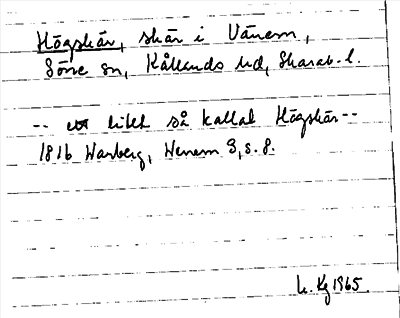 Högskär, skär i Vänern,
Söne sn, Kållands hd, Skarab. l.
-- ett litet så kallat Högskär --
1816 Warberg, Wenern 3, s. 8.
Kg 1965.